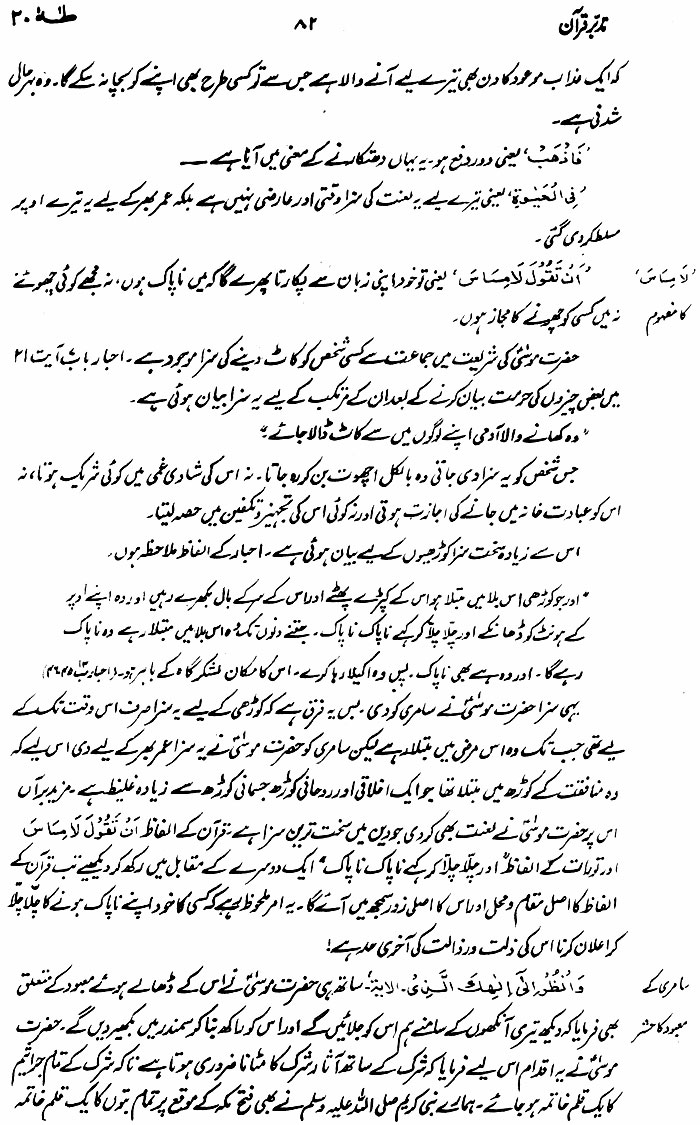 تدبر قرآن ۸۲ طٰهٰ ۲۰
کہ ایک عذاب موعود کا دن بھی تیرے لیے آنے والا ہے جس سے تو کسی طرح بھی اپنے کو بچا نہ سکے گا۔ وہ بہرحال
شدنی ہے۔
’فَاذْهَبْ‘ یعنی دور دفع ہو۔ یہ یہاں دھتکارنے کے معنی میں آیا ہے ۔۔۔
’فِی الْحَیٰوةِ‘ یعنی تیرے لیے یہ لعنت کی سزا وقتی اور عارضی نہیں ہے بلکہ عمر بھر کے لیے یہ تیرے اوپر
مسلط کر دی گئی۔
’لَا مِسَاسَ‘ ’اَنْ تَقُوْلَ لَا مِسَاسَ‘ یعنی تو خود اپنی زبان سے پکارتا پھرے گا کہ میں ناپاک ہوں، نہ مجھے کوئی چھوئے
کا مفہوم نہ میں کسی کو چھونے کا مجاز ہوں۔
حضرت موسیٰؑ کی شریعت میں جماعت سے کسی شخص کو کاٹ دینے کی سزا موجود ہے۔ احبار باب آیت ۲۱
میں بعض چیزوں کی حرمت بیان کرنے کے بعد ان کے مرتکب کے لیے یہ سزا بیان ہوئی ہے۔
”وہ کھانے والا آدمی اپنے لوگوں میں سے کاٹ ڈالا جائے۔“
جس شخص کو یہ سزا دی جاتی وہ بالکل اچھوت بن کر رہ جاتا۔ نہ اس کی شادی غمی میں کوئی شریک ہوتا، نہ
اس کو عبادت خانہ میں جانے کی اجازت ہوتی اور نہ کوئی اس کی تجہیز و تکفین میں حصہ لیتا۔
اس سے زیادہ سخت سزا کوڑھیوں کے لیے بیان ہوئی ہے۔ احبار کے الفاظ ملاحظہ ہوں۔
”اور جو کوڑھی اس بلا میں مبتلا ہو اس کے کپڑے پھٹے اور اس کے سر کے بال بکھرے رہیں اور وہ اپنے اوپر
کے ہونٹ کو ڈھانکے اور چلا چلا کر کہے ناپاک ناپاک۔ جتنے دنوں تک وہ اس بلا میں مبتلا رہے وہ ناپاک
رہے گا۔ اور وہ ہے بھی ناپاک۔ پس وہ اکیلا رہا کرے۔ اس کا مکان لشکر گاہ کے باہر ہو۔“ (احبار ۱۳: ۴۵-۴۶)
یہی سزا حضرت موسیٰؑ نے سامری کو دی۔ بس یہ فرق ہے کہ کوڑھی کے لیے یہ سزا صرف اس وقت تک کے
لیے تھی جب تک وہ اس مرض میں مبتلا رہے لیکن سامری کو حضرت موسیٰؑ نے یہ سزا عمر بھر کے لیے دی اس لیے کہ
وہ منافقت کے کوڑھ میں مبتلا تھا جو ایک اخلاقی اور روحانی کوڑھ جسمانی کوڑھ سے زیادہ غلیظ ہے۔ مزید برآں
اس پر حضرت موسیٰؑ نے لعنت بھی کر دی جو دین میں سخت ترین سزا ہے۔ قرآن کے الفاظ اَنْ تَقُوْلَ لَا مِسَاسَ
اور تورات کے الفاظ ”اور چلا چلا کر کہے ناپاک ناپاک“ ایک دوسرے کے مقابل میں رکھ کر دیکھیے تب قرآن کے
الفاظ کا اصل مقام و محل اور اس کا اصلی زور سمجھ میں آئے گا۔ یہ امر ملحوظ رہے کہ کسی کا خود اپنے ناپاک ہونے کا چلا چلا
کر اعلان کرنا اس کی ذلت و رذالت کی آخری حد ہے!
سامری کے وَانْظُرْ اِلٰٓی اِلٰهِكَ الَّذِیْ۔ الایۃ۔ ساتھ ہی حضرت موسیٰؑ نے اس کے ڈھالے ہوئے معبود کے متعلق
معبود کا حشر بھی فرمایا کہ دیکھ تیری آنکھوں کے سامنے ہم اس کو جلائیں گے اور اس کو راکھ بنا کر سمندر میں بکھیر دیں گے۔ حضرت
موسیٰؑ نے یہ اقدام اس لیے فرمایا کہ شرک کے ساتھ آثار شرک کا مٹانا ضروری ہوتا ہے تاکہ شرک کے تمام جراثیم
کا یک قلم خاتمہ ہو جائے۔ ہمارے نبی کریم صلی اللہ علیہ وسلم نے بھی فتح مکہ کے موقع پر تمام بتوں کا یک قلم خاتمہ